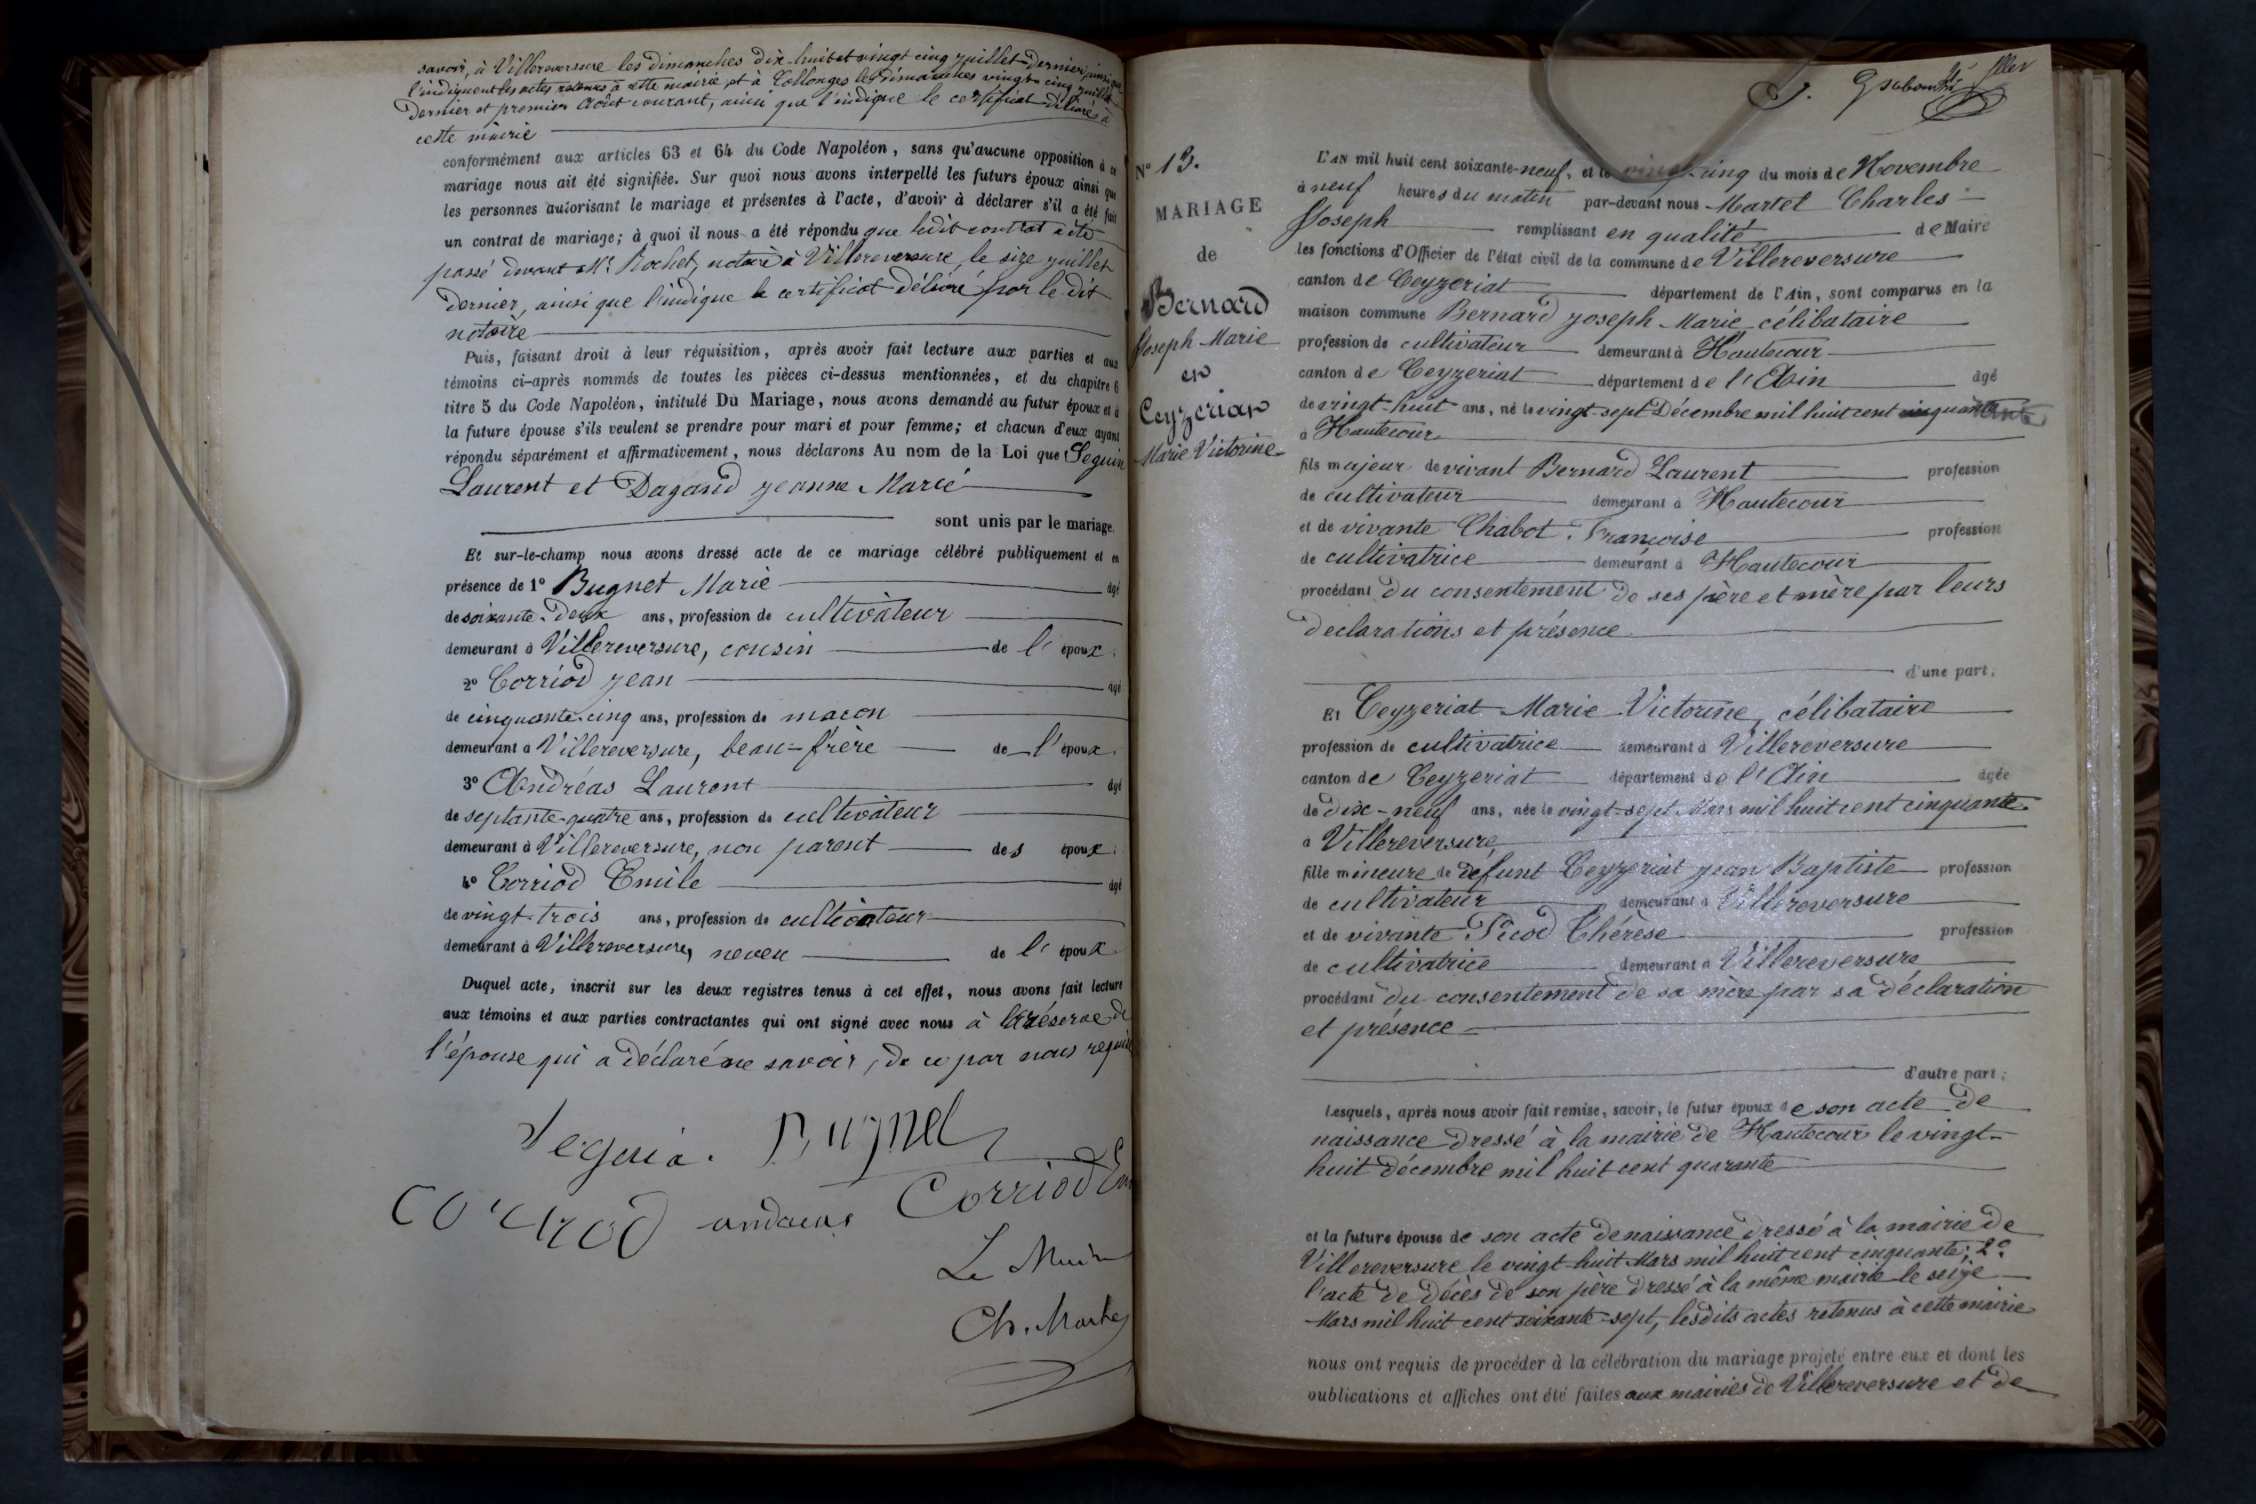 savoir, à Villereversure les dimanches dix-huit et vingt cinq juillet dernier, ainsi que
l'indiquent les actes retenus à cette mairie, et à Collonges les dimanches vingt-cinq juillet
dernier et premier Août courant, ainsi que l'indique le certificat délivré à
cette mairie
conformément aux articles 63 et 64 du Code Napoléon, sans qu'aucune opposition à ce
mariage nous ait été signifiée. Sur quoi nous avons interpellé les futurs époux ainsi que
les personnes autorisant le mariage et présentes à l'acte, d'avoir à déclarer s'il a été fait
un contrat de mariage; à quoi il nous a été répondu que ledit contrat a été
passé devant Me Rochet, notaire à Villereversure, le size juillet
dernier, ainsi que l'indique le certificat délivré par le dit
notaire
Puis, faisant droit à leur réquisition, après avoir fait lecture aux parties et aux
témoins ci-après nommés de toutes les pièces ci-dessus mentionnées, et du chapitre 6
titre 5 du Code Napoléon, intitulé Du Mariage, nous avons demandé au futur époux et à
la future épouse s'ils veulent se prendre pour mari et pour femme; et chacun d'eux ayant
répondu séparément et affirmativement, nous déclarons Au nom de la Loi que Seguin
Laurent et Dagand Jeanne Marie
sont unis par le mariage.
Et sur-le-champ nous avons dressé acte de ce mariage célébré publiquement et en
présence de 1° Bugnet Marie âgé
de soixante-deux ans, profession de cultivateur
demeurant à Villereversure, cousin de l' époux.
2° Corriod Jean âgé
de cinquante-cinq ans, profession de maçon
demeurant à Villereversure, beau-frère de l' époux.
3° Andréas Laurent âgé
de septante-quatre ans, profession de cultivateur
demeurant à Villereversure, non parent des époux.
4° Corriod Emile âgé
de vingt-trois ans, profession de cultivateur
demeurant à Villereversure, neveu de l' époux
Duquel acte, inscrit sur les deux registres tenus à cet effet, nous avons fait lecture
aux témoins et aux parties contractantes qui ont signé avec nous à la réserve de
l'épouse qui a déclaré ne savoir, de ce par nous requise
Seguin. Bugnet
Corriod andreas Corriod Em
Le Maire
Ch. Martel
N° 13.
MARIAGE
de
Bernard
Joseph Marie
et
Ceyzeriat
Marie Victorine
L'AN mil huit cent soixante-neuf, et le vingt-cinq du mois de Novembre
à neuf heures du matin par-devant nous Martel Charles
Joseph remplissant en qualité de Maire
les fonctions d'Officier de l'état civil de la commune de Villereversure
canton de Ceyzeriat département de l'Ain, sont comparus en la
maison commune Bernard Joseph Marie célibataire
profession de cultivateur demeurant à Hautecour
canton de Ceyzeriat département de l'Ain âgé
de vingt-huit ans, né le vingt-sept Décembre mil huit cent
à Hautecour
fils majeur de vivant Bernard Laurent profession
de cultivateur demeurant à Hautecour
et de vivante Chabot Françoise profession
de cultivatrice demeurant à Hautecour
procédant du consentement de ses père et mère par leurs
declarations et présence
d'une part;
Et Ceyzeriat Marie Victorine, célibataire
profession de cultivatrice demeurant à Villereversure
canton de Ceyzeriat département de l'Ain âgée
de dix-neuf ans, née le vingt-sept Mars mil huit cent cinquante
à Villereversure,
fille mineure de défunt Ceyzeriat Jean Baptiste profession
de cultivateur demeurant à Villereversure
et de vivante Picod Thérèse profession
de cultivatrice demeurant à Villereversure
procédant du consentement de sa mère par sa déclaration
et présence
d'autre part;
Lesquels, après nous avoir fait remise, savoir, le futur époux de son acte de
naissance dressé à la mairie de Hautecour le vingt-
huit décembre mil huit cent quarante
et la future épouse de son acte de naissance dressé à la mairie de
Villereversure le vingt-huit Mars mil huit cent cinquante; 2°
l'acte de décès de son père dressé à la même mairie le seize
Mars mil huit cent soixante-sept, lesdits actes retenus à cette mairie
nous ont requis de procéder à la célébration du mariage projeté entre eux et dont les
publications et affiches ont été faites aux mairies de Villereversure et de